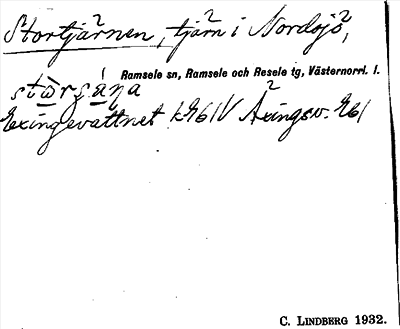 Stortjärnen, tjärn i Nordsjö,
Ramsele sn, Ramsele och Resele tg, Västernorrl. l.
Exingevattnet k761V Äxingsv. 761
C. LINDBERG 1932.